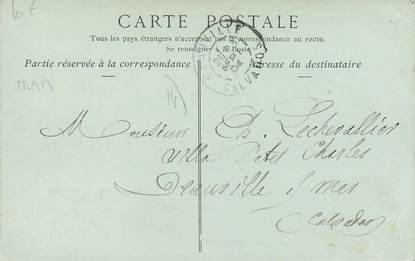 10 f
CARTE POSTALE
Tous les pays étrangers n'acceptent pas la correspondance au recto.
Se renseigner à la Poste
Partie réservée à la correspondance
Adresse du destinataire
TRAM
VILLE
CALVADOS
Monsieur Ch. Lechevallier
Villa Petit Charles
Deauville s/ mer
Calvados